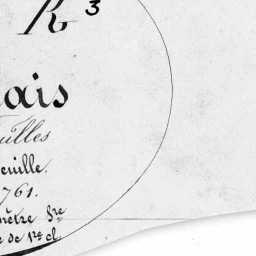 R 3
ais
uilles
euille.
761.
mètre Gre
e de 1re cl.